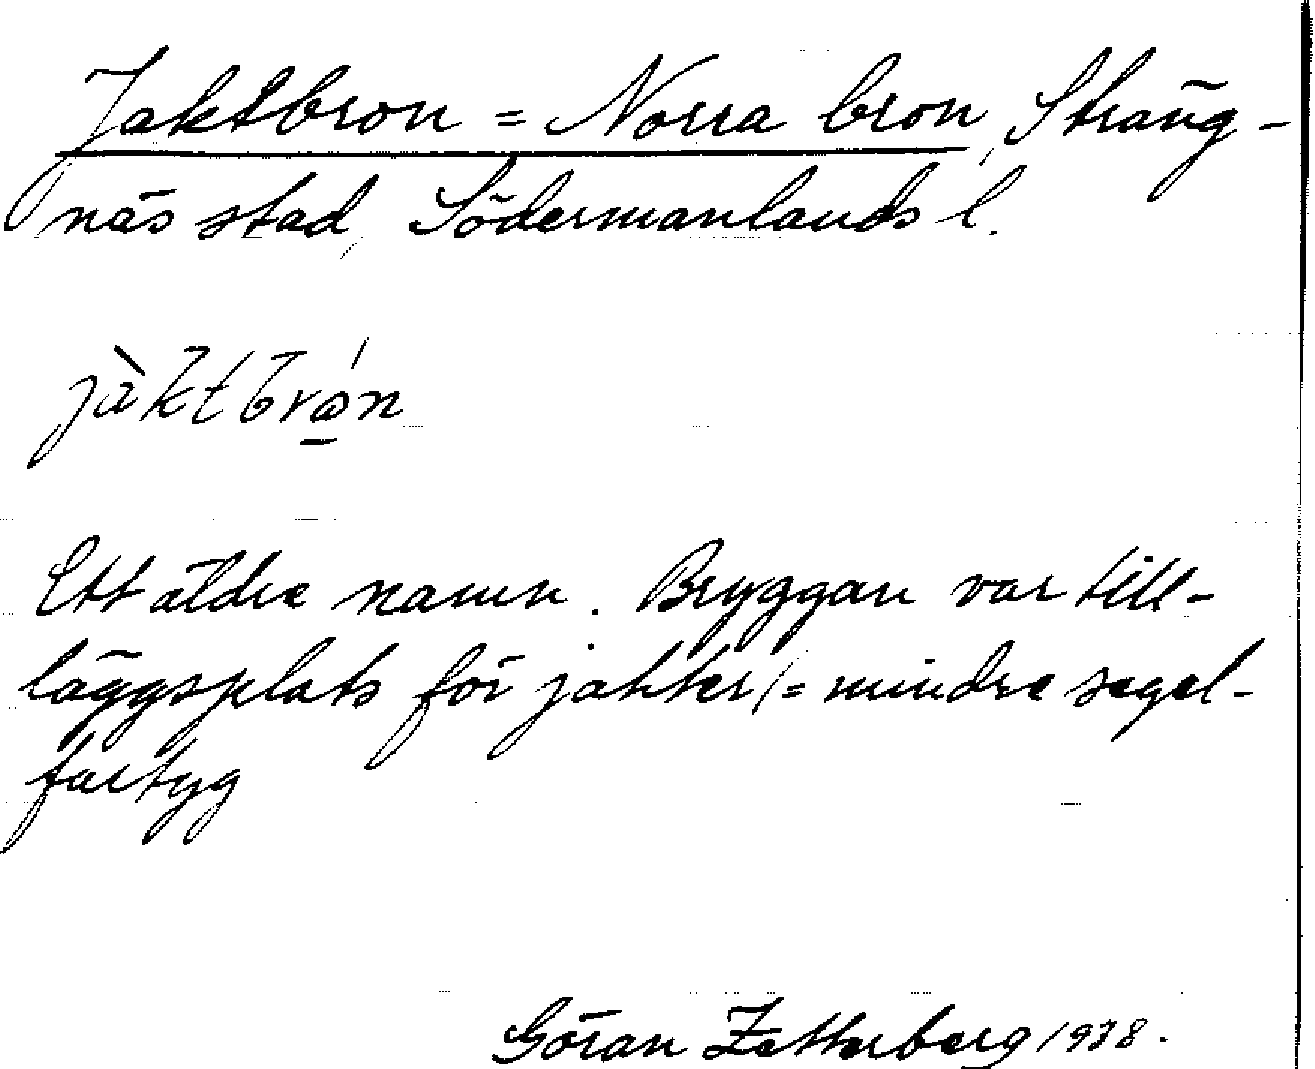 Jaktbron = Norra bron, Sträng-
näs stad, Södermanlands l.
jàktbrǫ́n
Ett äldre namn. Bryggan var till-
läggsplats för jakter/= mindre segel-
fartyg
Göran Zetterberg 1938.